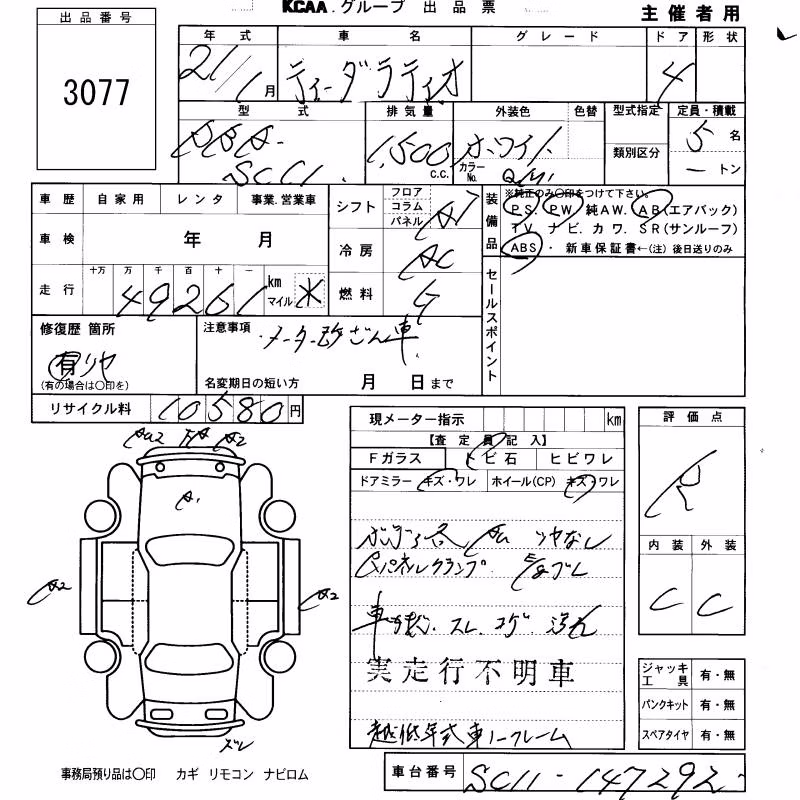 KCAA.グループ 出品票
主催者用
出品番号
3077
年式 車名 グレード ドア 形状
21/1月 ティーダラティオ 4
型式 排気量 外装色 色替 型式指定 定員・積載
DBA-
SC11. 1,500 c.c. ホワイト カラーNo. QM1 類別区分 5名
ートン
車歴 自家用 レンタ 事業.営業車
シフト フロア コラム パネル AT
装備品 ※純正のみ〇印をつけて下さい。
PS. PW 純AW. AB(エアバック)
TV ナビ.カワ.SR(サンルーフ)
ABS・新車保証書←(注)後日送りのみ
車検 年 月
冷房 AC
走行 十万 万 千 百 十 一 49261 km マイル ※
燃料 G
セールスポイント
修復歴 箇所
有 リヤ
(有の場合は〇印を)
注意事項
・メーター改ざん車
名変期日の短い方 月 日まで
リサイクル料 10580円
現メーター指示 km
【査定員記入】
Fガラス トビ石 ヒビワレ
ドアミラー キズ・ワレ ホイール(CP) キズ・ワレ
ツヤなし
車内 スレ.コゲ.汚れ
実走行不明車
評価点
R
内装 外装
C C
ジャッキ工具 有・無
パンクキット 有・無
スペアタイヤ 有・無
AU2 A2
A1
A2
A2
ズレ
事務局預り品は〇印 カギ リモコン ナビロム
車台番号 SC11-147292